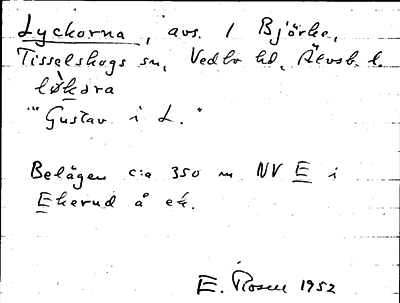 Lyckorna, avs. 1 Björke,
Tisselskogs sn, Vedbo hd, Älvsb. l.
lø̀kɔra
"Gustav i L."
Belägen c:a 350 m NV E i
Ekerud å ek.
E. Rosen 1952